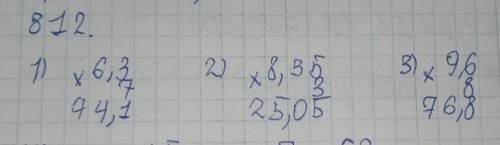 812.
1) × 6,3 2) × 8,35 3) × 9,6
7 3 8
44,1 25,05 76,8